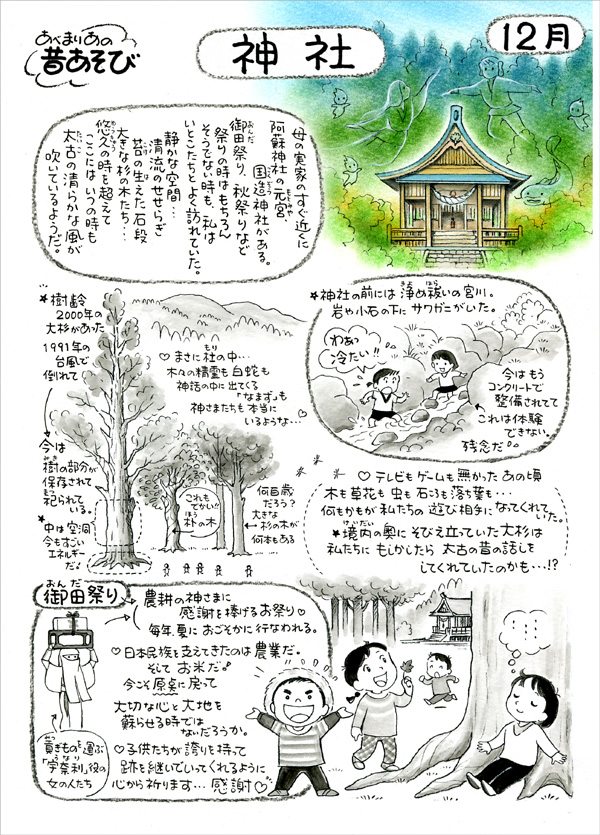 あべまりあの
昔あそび
神社
12月
母の実家のすぐ近くに
阿蘇神社の元宮、
国造神社がある。
御田祭り、秋祭りなど
祭りの時はもちろん
そうでない時も、私は
いとこたちとよく訪れていた。
静かな空間…
清流のせせらぎ
苔の生えた石段
大きな杉の木たち…
悠久の時を超えて
ここには いつの時も
太古の清らかな風が
吹いているようだ。
★樹齢
2000年の
大杉があった
1991年の
台風で
倒れて
今は
樹の部分が
保存されて
祀られている。
★中は空洞
今もすごい
エネルギー
だ!
♡まさに杜の中…
木々の精霊も白蛇も
神話の中に出てくる
「なまず」も
神さまたちも本当に
いるような…♡
これも
でかい!!
朴の木
何百歳
だろう?
大きな
杉の木が
何本もある
★神社の前には浄め祓いの宮川。
岩や小石の下にサワガニがいた。
わぁっ
冷たい!!
今はもう
コンクリートで
整備されてて
これは体験
できない。
残念だ。
♡テレビもゲームも無かったあの頃
木も草花も虫も石ころも落ち葉も…
何もかもが私たちの遊び相手になってくれていた。
★境内の奥にそびえ立っていた大杉は
私たちにもしかしたら太古の昔の話しを
してくれていたのかも…!?
御田祭り
農耕の神さまに
感謝を捧げるお祭り♡
毎年夏におごそかに行なわれる。
♡日本民族を支えてきたのは農業だ。
そしてお米だ!
今こそ原点に戻って
大切な心と大地を
蘇らせる時では
ないだろうか。
♡子供たちが誇りを持って
跡を継いでいってくれるように
心から祈ります…感謝♡
貢ぎものを運ぶ
「宇奈利」役の
女の人たち